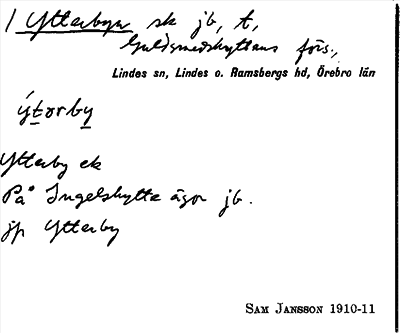 1 Ytterbyn sk jb, t,
Guldsmedshyttans förs.,
Lindes sn, Lindes o. Ramsbergs hd, Örebro län
ýtərby
Ytterby ek
På Ingelshytte ägor jb.
jfr Ytterby
SAM JANSSON 1910-11